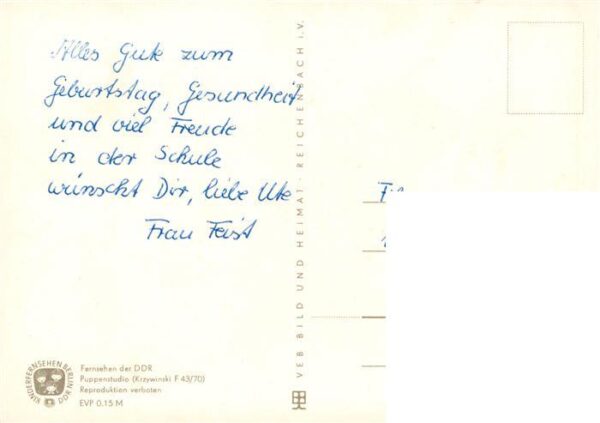 Alles Gute zum
Geburtstag, Gesundheit
und viel Freude
in der Schule
wünscht Dir, liebe Ute
Frau Feist
VEB BILD UND HEIMAT REICHENBACH i.V.
KINDERFERNSEHEN BERLIN DDR
Fernsehen der DDR
Puppenstudio (Krzywinski F 43/70)
Reproduktion verboten
EVP 0.15 M